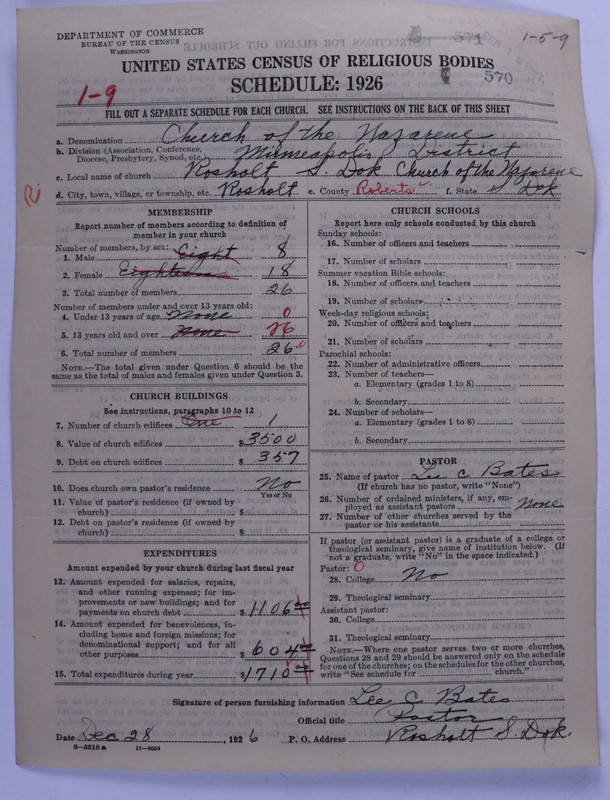 DEPARTMENT OF COMMERCE
BUREAU OF THE CENSUS
WASHINGTON
571
1-5-9
UNITED STATES CENSUS OF RELIGIOUS BODIES
570
SCHEDULE: 1926
1-9
FILL OUT A SEPARATE SCHEDULE FOR EACH CHURCH. SEE INSTRUCTIONS ON THE BACK OF THIS SHEET
a. Denomination Church of the Nazarene
b. Division (Association, Conference, Diocese, Presbytery, Synod, etc.) Minneapolis District
c. Local name of church Rosholt S. Dok Church of the Nazarene
d. City, town, village, or township, etc. Rosholt e. County Roberts f. State S Dok
MEMBERSHIP
Report number of members according to definition of
member in your church
Number of members, by sex:
1. Male Eight 8
2. Female Eighteen 18
3. Total number of members 26
Number of members under and over 13 years old:
4. Under 13 years of age None 0
5. 13 years old and over None 26
6. Total number of members 26
NOTE.—The total given under Question 6 should be
same as the total of males and females given under Question 3.
CHURCH BUILDINGS
See instructions, paragraphs 10 to 12
7. Number of church edifices One 1
8. Value of church edifices $3500
9. Debt on church edifices $357
10. Does church own pastor's residence? No
Yes or No
11. Value of pastor's residence (if owned by
church) $
12. Debt on pastor's residence (if owned by
church) $
EXPENDITURES
Amount expended by your church during last fiscal year
13. Amount expended for salaries, repairs,
and other running expenses; for im-
provements or new buildings; and for
payments on church debt $1106 00
14. Amount expended for benevolences, in-
cluding home and foreign missions; for
denominational support; and for all
other purposes $604 00
15. Total expenditures during year $1710 00
CHURCH SCHOOLS
Report here only schools conducted by this church
Sunday schools:
16. Number of officers and teachers
17. Number of scholars
Summer vacation Bible schools:
18. Number of officers and teachers
19. Number of scholars
Week-day religious schools:
20. Number of officers and teachers
21. Number of scholars
Parochial schools:
22. Number of administrative officers
23. Number of teachers—
a. Elementary (grades 1 to 8)
b. Secondary
24. Number of scholars—
a. Elementary (grades 1 to 8)
b. Secondary
PASTOR
25. Name of pastor Lee C Bates
(If church has no pastor, write "None")
26. Number of ordained ministers, if any, em-
ployed as assistant pastors None
27. Number of other churches served by the
pastor or his assistants
If pastor (or assistant pastor) is a graduate of a college or
theological seminary, give name of institution below. (If
not a graduate, write "No" in the space indicated.)
Pastor: 0
28. College No
29. Theological seminary
Assistant pastor:
30. College
31. Theological seminary
NOTE.—Where one pastor serves two or more churches,
Questions 28 and 29 should be answered only on the schedule
for one of the churches; on the schedules for the other churches,
write "See schedule for church."
Signature of person furnishing information Lee C Bates
Official title Pastor
Date Dec 28, 1926 P. O. Address Rosholt S. Dok.
8-5518a 11-9064